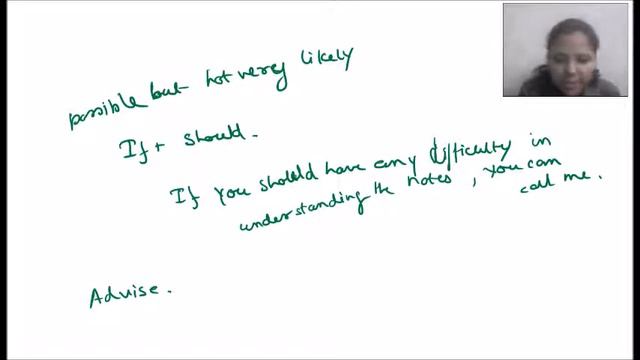 possible but not very likely
If + should.
If you should have any difficulty in
understanding the notes, you can
call me.
Advise.